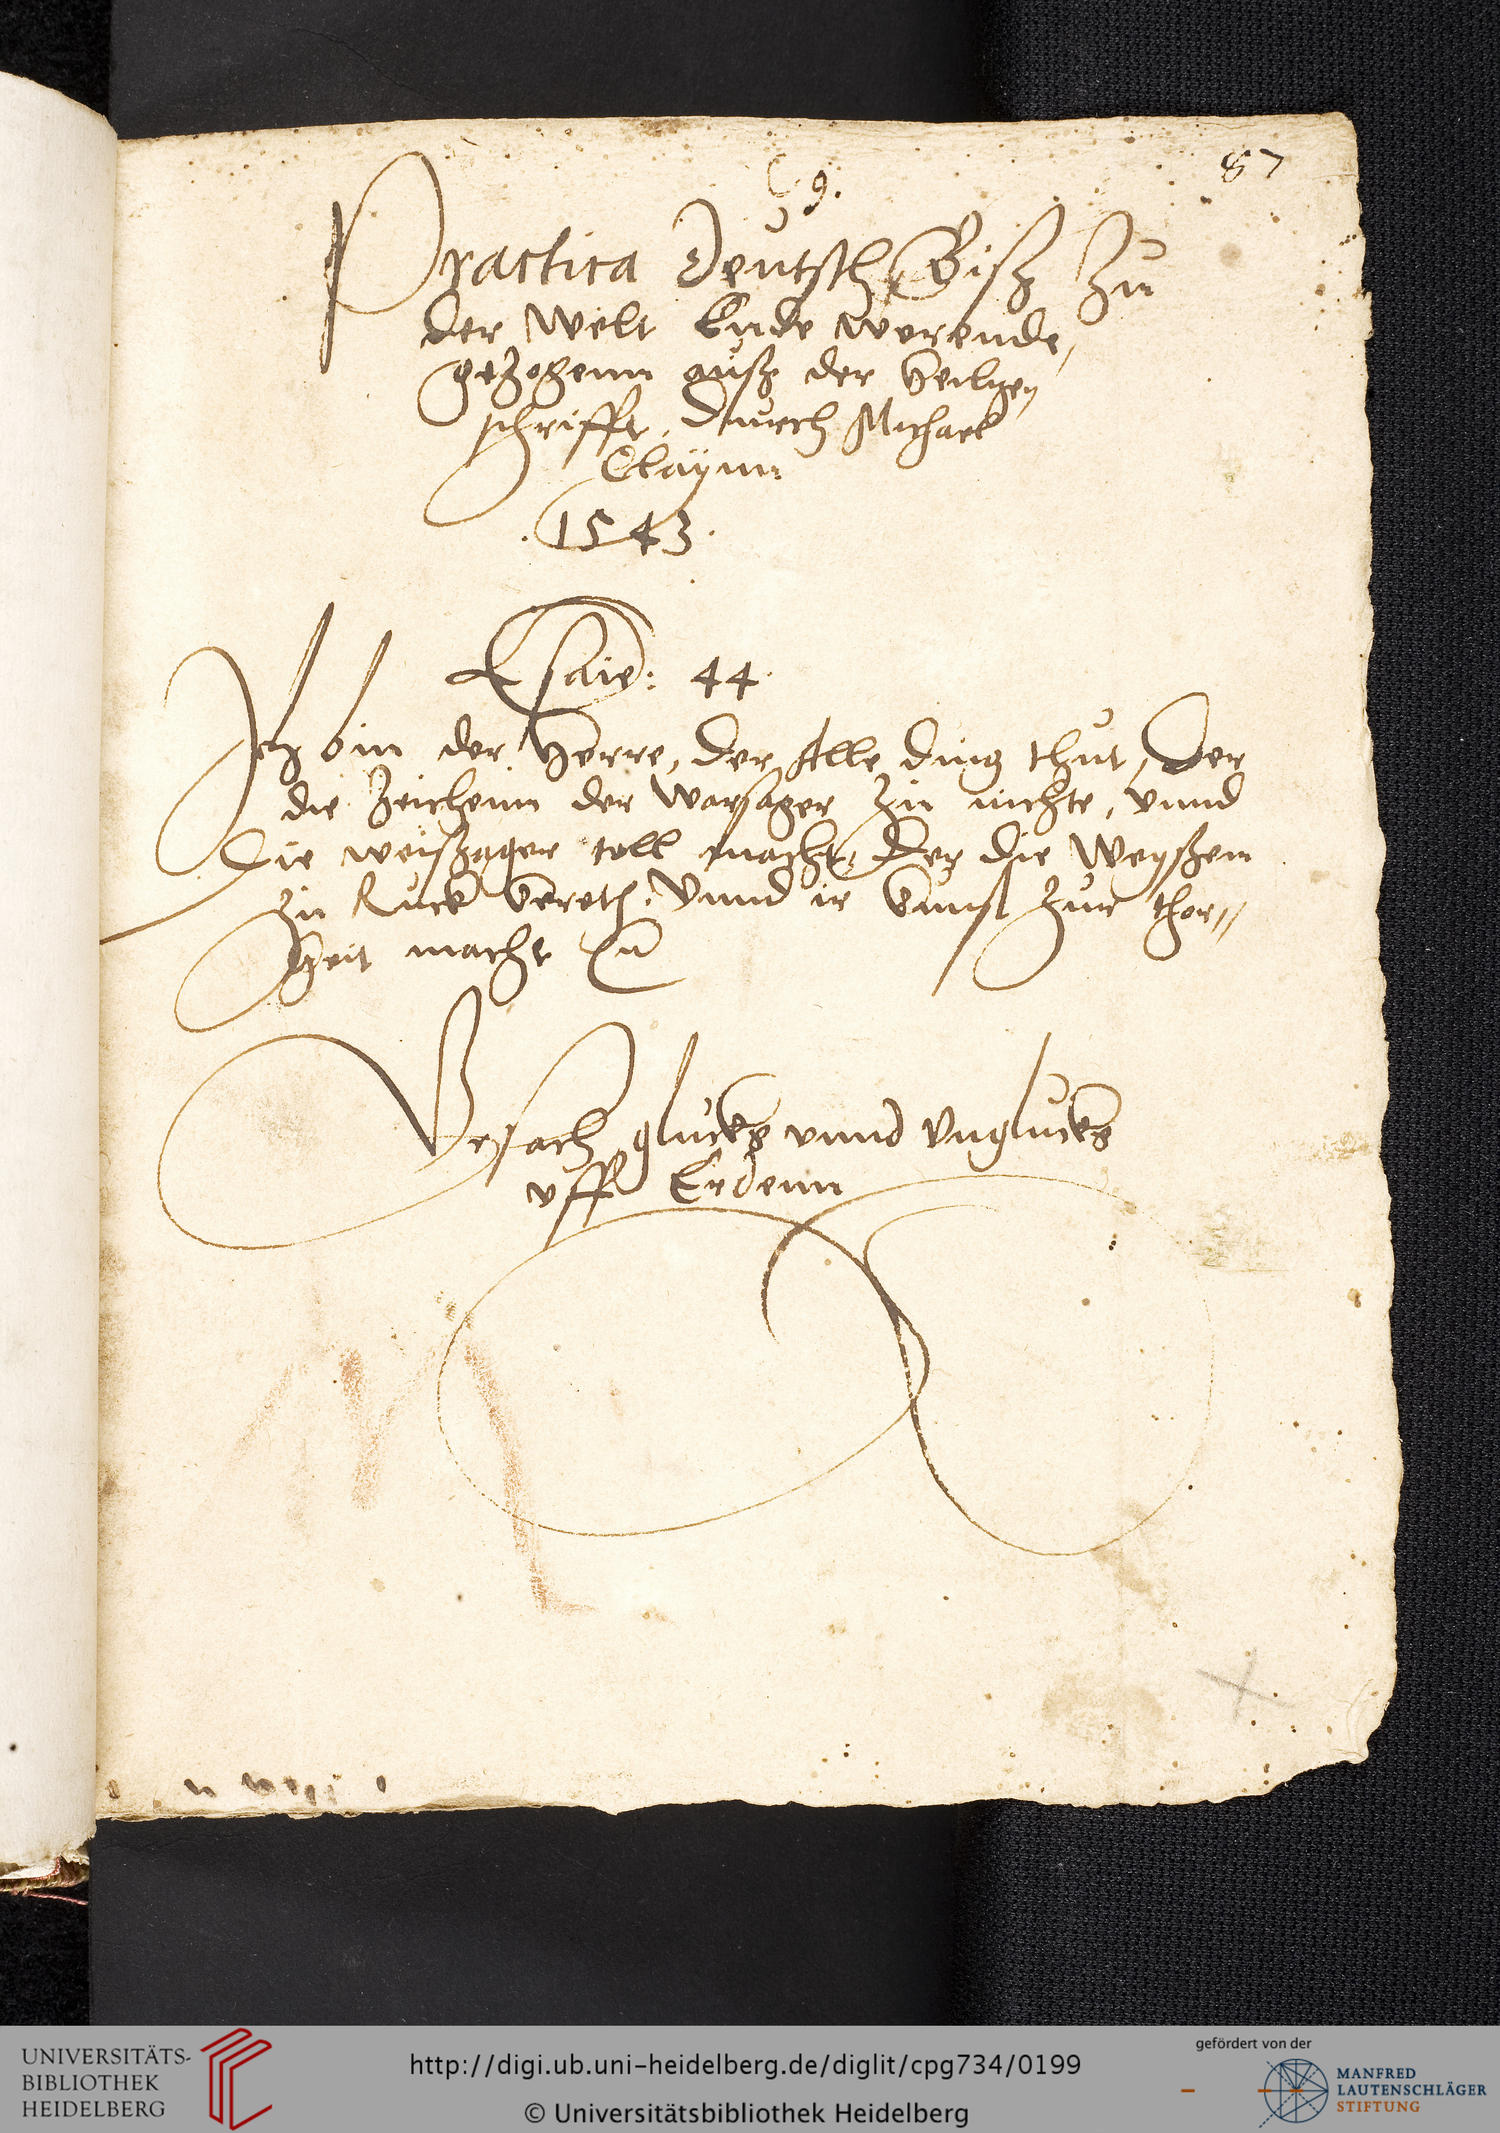 9.
87
Practica Deutsch Bisz zu
der Welt Ende werende,
gezogenn ausz der heiligen
schrifft, durch Michael
Claÿnn
.1543.
Esaie: 44.
Ich bin der Herre, der Alle ding thut, Der
die Zeichenn der Warsager zu nichte, vnnd
Die weissager toll macht, Der die Weyszenn
zu Ruck kereth. Vnnd ir kunst zur thor//
heit macht
Vrsach glucks vnnd Vnglucks
vff Erdenn
UNIVERSITÄTS-
BIBLIOTHEK
HEIDELBERG
http://digi.ub.uni-heidelberg.de/diglit/cpg734/0199
© Universitätsbibliothek Heidelberg
gefördert von der
MANFRED
LAUTENSCHLÄGER
STIFTUNG